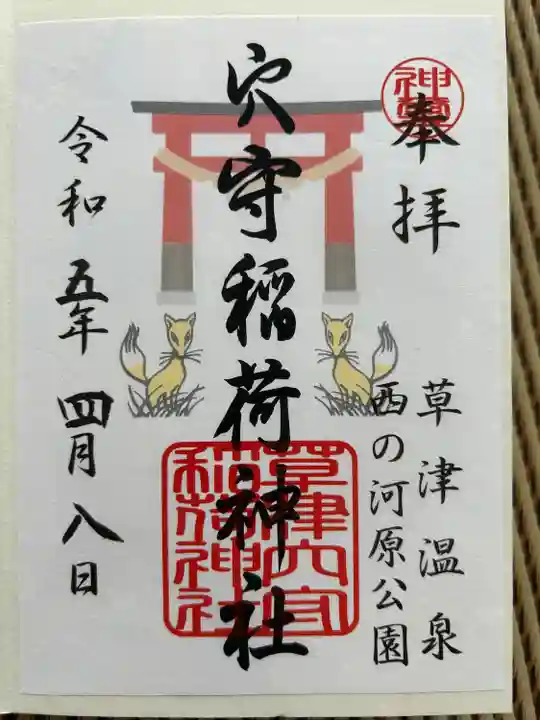 奉拝
草津温泉
西の河原公園
穴守稲荷神社
草津穴守
稲荷神社
令和五年四月八日